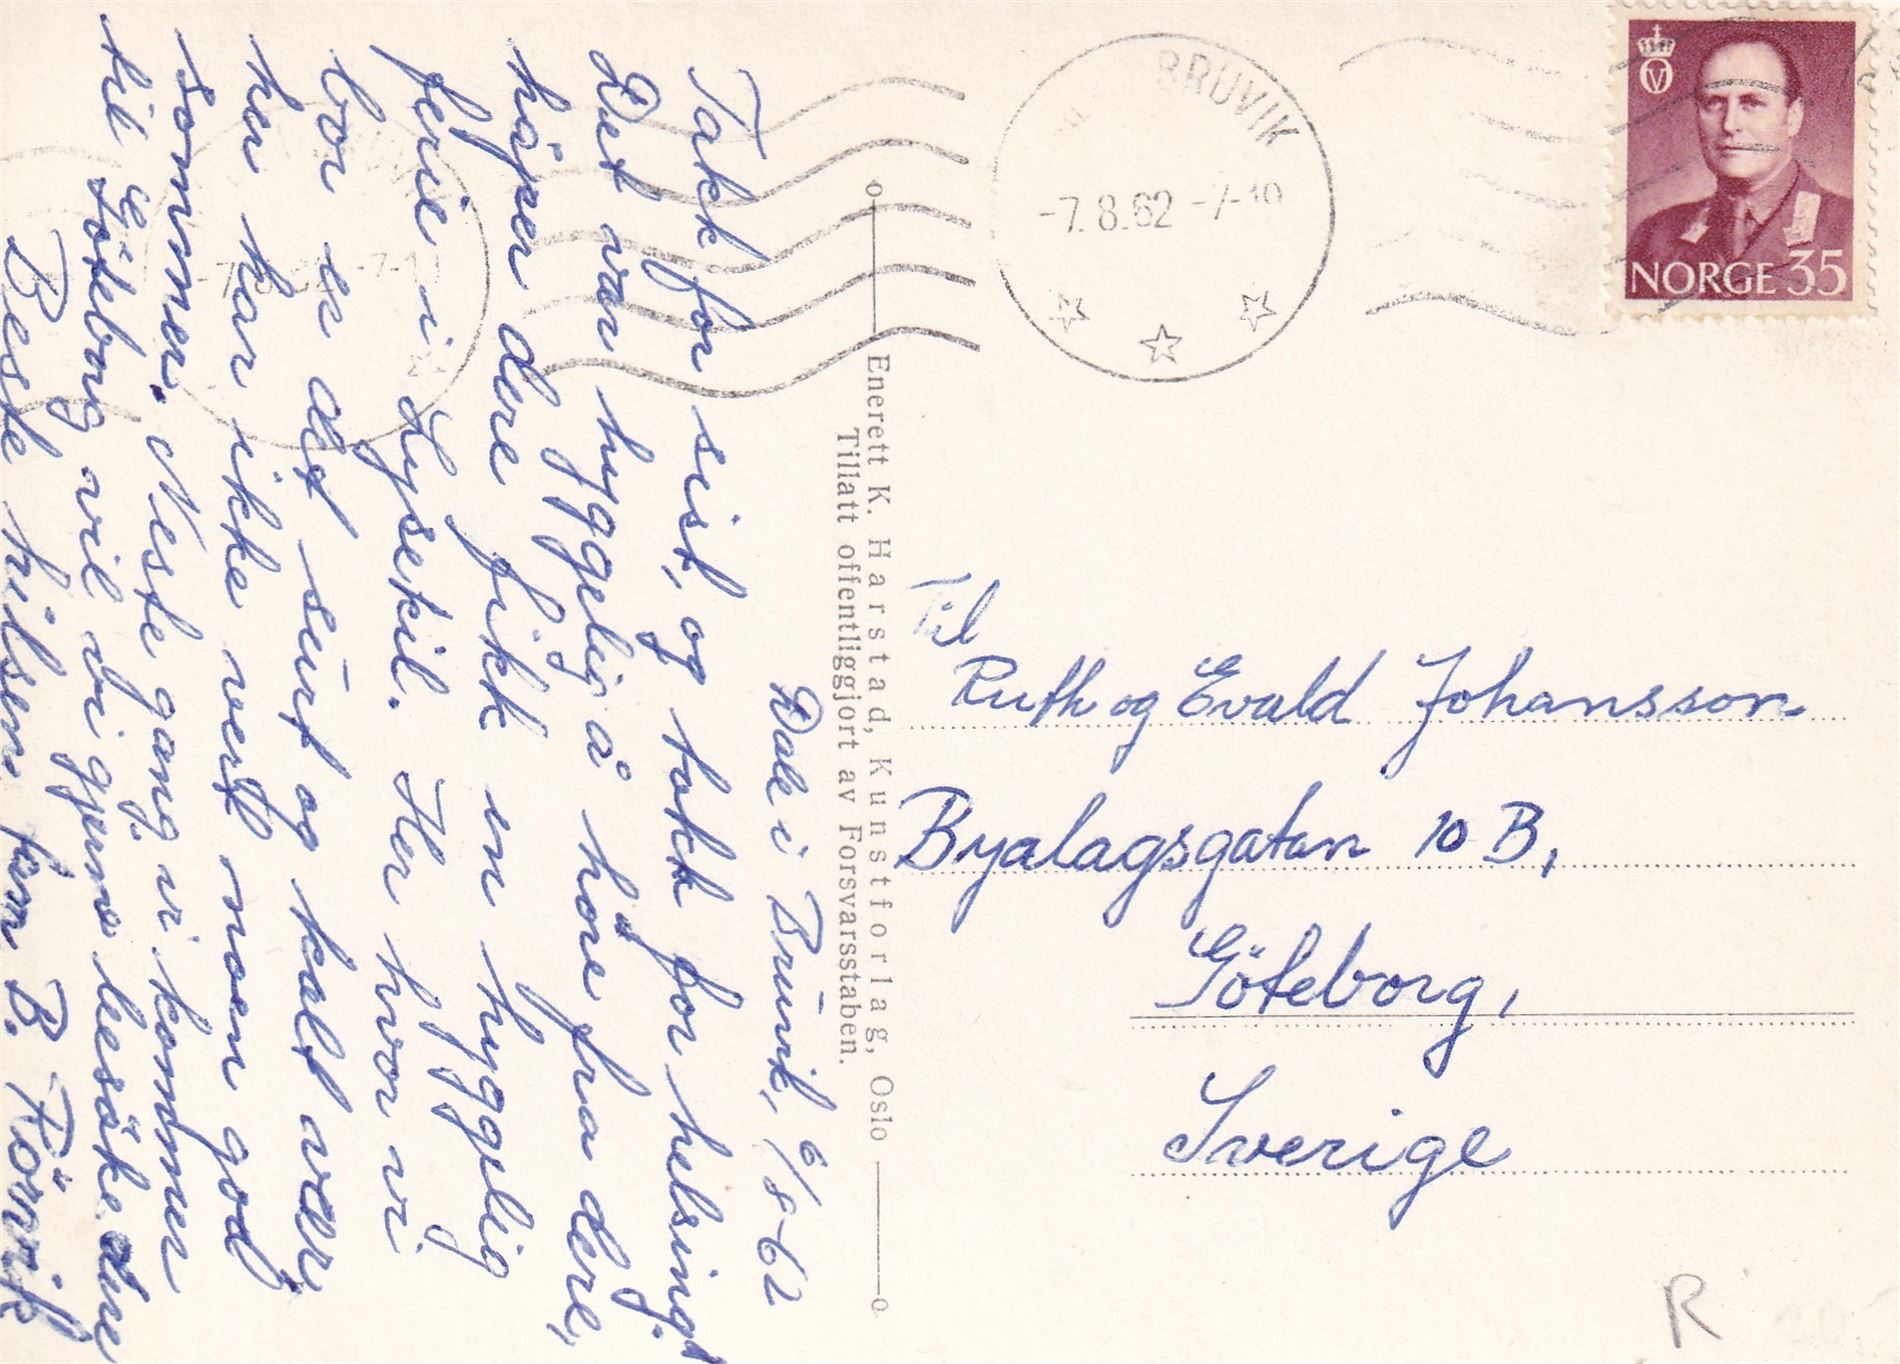 Dale i Bruvik, 6/8-62
Takk for sist, og takk for helsing.
Det var hyggelig å höre fra dere,
håper dere fikk en hyggelig
ferie i Lysekil. Her hvor vi
bor er det surt og kalt været
hen har ikke vert noen god
sommer. Neste gang vi kommer
til Göteborg vil vi gjerne besöke dere
Beste hilsen fam B. Rörvik
Enerett K. Harstad, Kunstforlag, Oslo
Tillatt offentliggjort av Forsvarsstaben.
BRUVIK
-7.8.62 -7-10
-7-10
NORGE 35
Til
Ruth og Evald Johansson
Byalagsgatan 10 B,
Göteborg,
Sverige
R